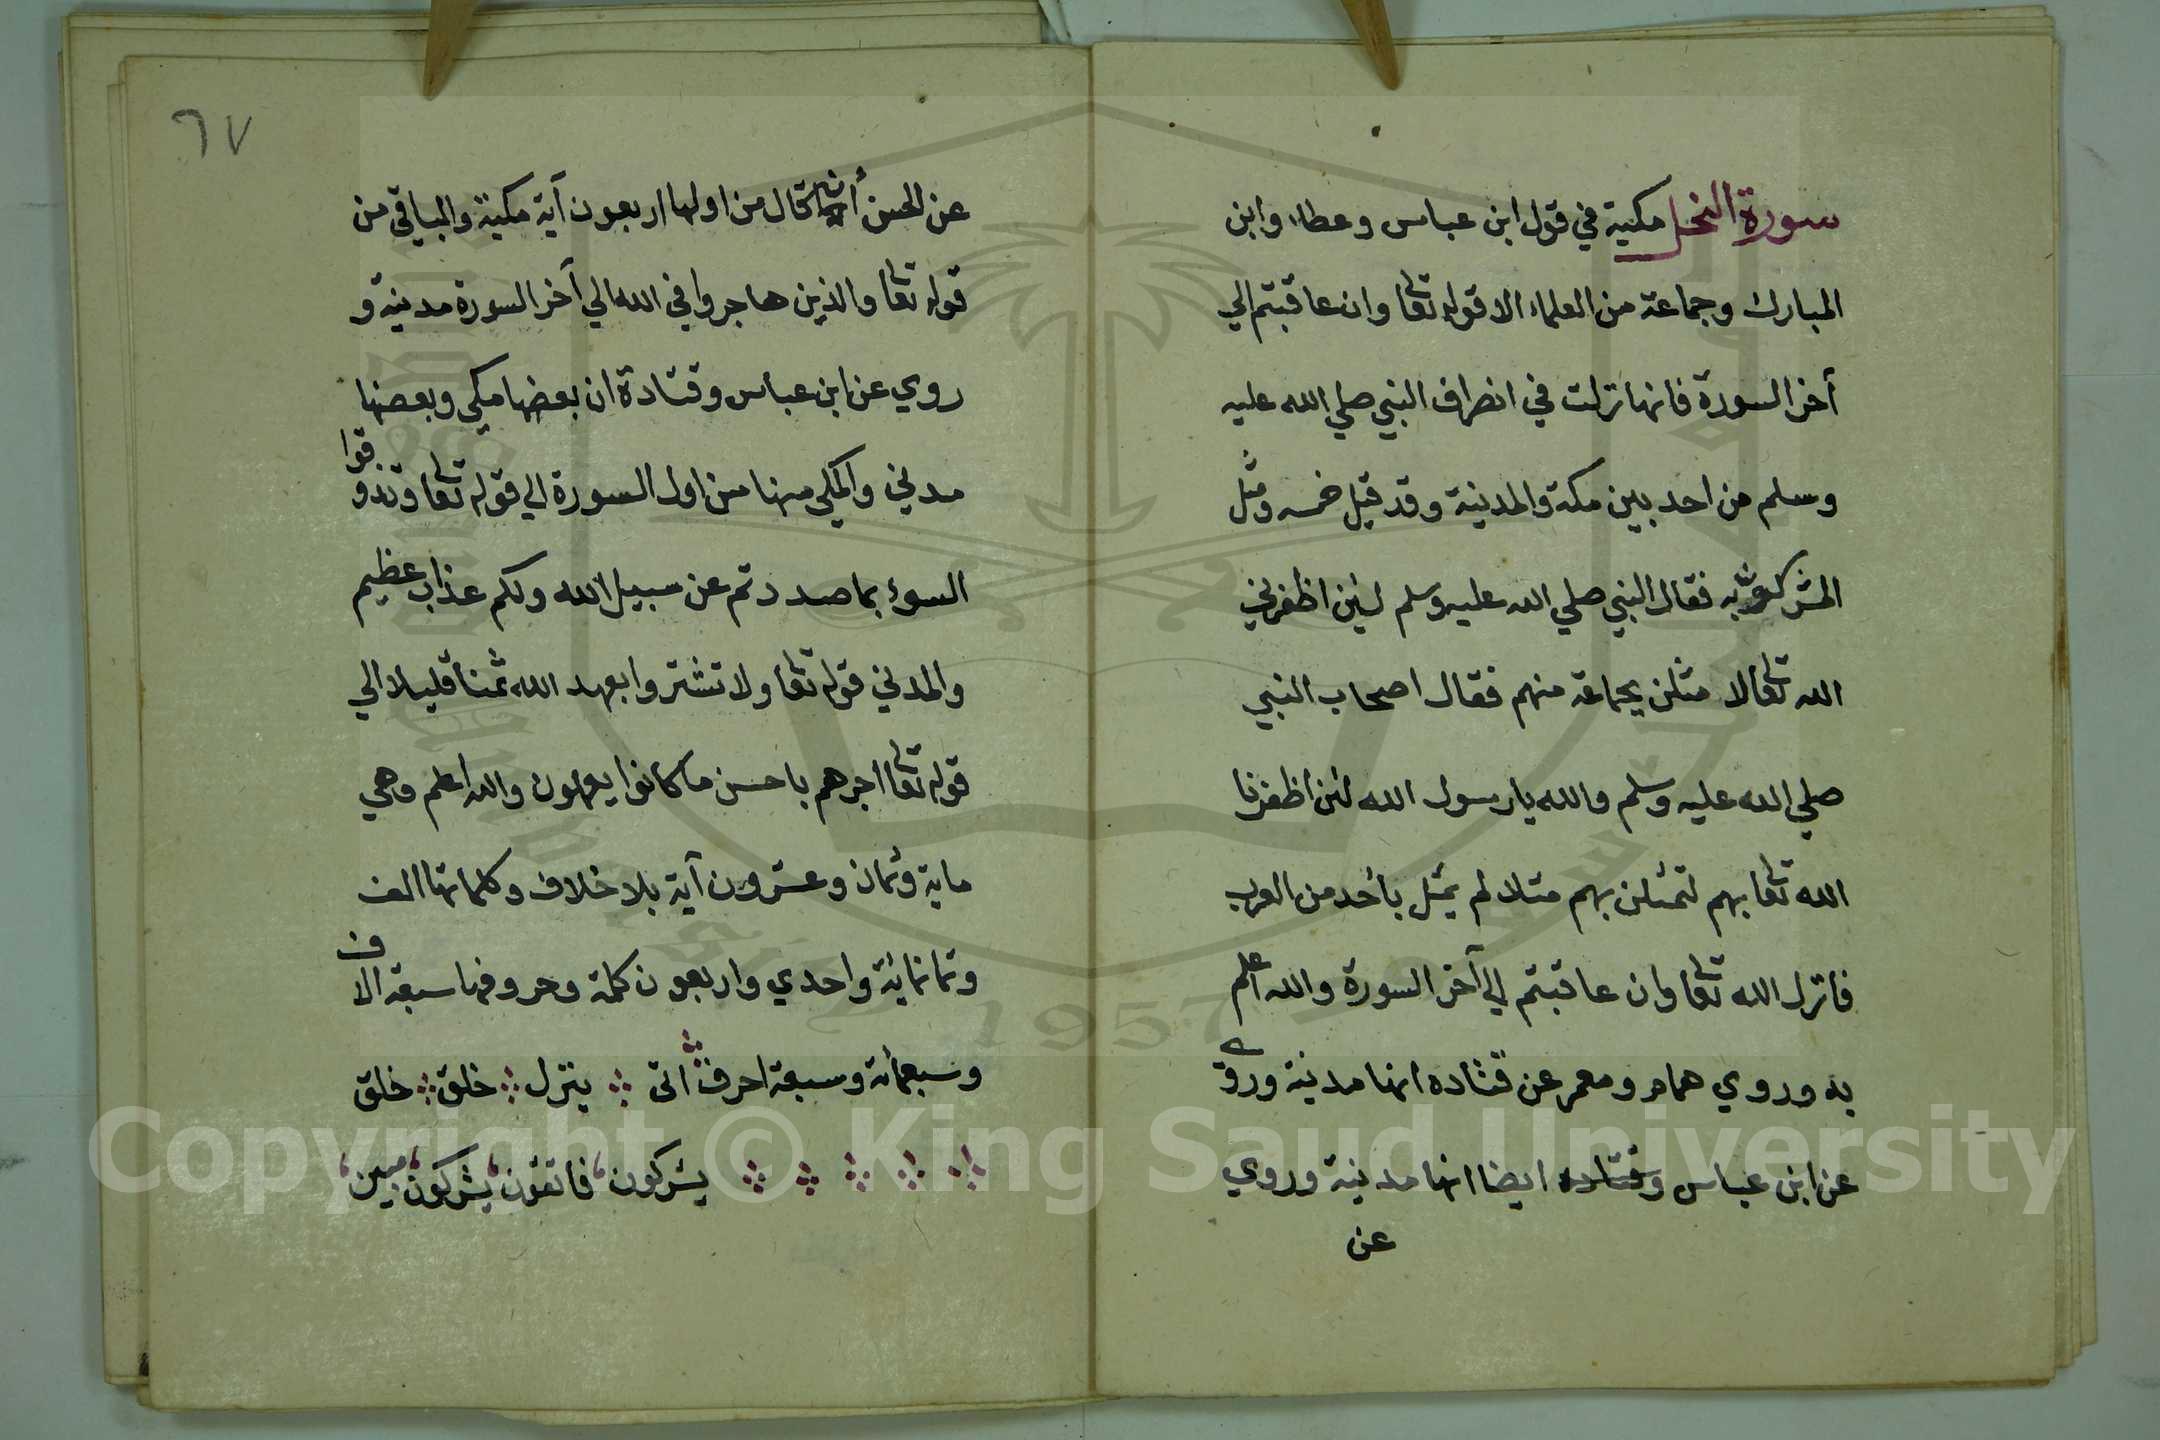 سورة النخل مكية في قول ابن عباس وعطاء وابن
المبارك وجماعة من العلماء الا قوله تعا وان عاقبتم الي
آخر السورة فانها نزلت في انصراف النبي صلي الله عليه
وسلم من احد بين مكة والمدينة وقد قيل ومثل
به فقال النبي صلي الله عليه وسلم لئن اظفرني
الله تعا لا مثلن بجماعة منهم فقال اصحاب النبي
صلي الله عليه وسلم والله يا رسول الله لئن اظفرنا
الله تعا بهم لنمثلن بهم مثلا لم يمثل باحد من العرب
فانزل الله تعا وان عاقبتم الي آخر السورة والله اعلم
به وروي همام ومعمر عن قتاده انها مدنية وروي
عن ابن عباس وقتاده ايضا انها مدنية وروي
عن
٦٧
عن الحسن أنه قال من اولها اربعون آية مكية والباقي من
قوله تعا والذين هاجروا في الله الي آخر السورة مدينة و
روي عن ابن عباس وقتادة ان بعضها مكي وبعضها
مدني والمكي منها من اول السورة الي قوله تعا وتذوقوا
السوء بما صددتم عن سبيل الله ولكم عذاب عظيم
والمدني قوله تعا ولا تشتروا بعهد الله ثمنا قليلا الي
قوله تعا اجرهم باحسن ما كانوا يعملون والله اعلم وهي
ماية وثمان وعشرون آية بلا خلاف وكلماتها الف
وثمانمائة واحدي واربعون كلمة وحروفها سبعة الاف
وسبعمائة وسبعة احرف اتى ينزل خلق خلق
يشركون فاتقون يشركون مبين
Copyright © King Saud University
1957